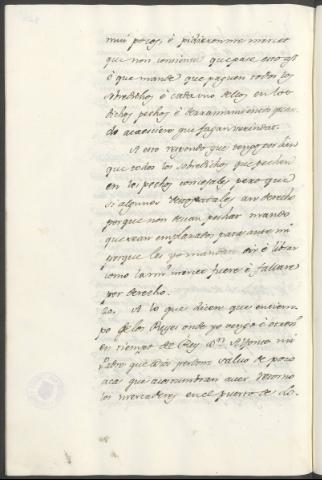 mui pocos, é pidieronme merced
que non consienta que pase esto assi
é que mande que paguen todos los
sobredichos é cada uno dellos en los
dichos pechos é derramamientos quan-
do acaesciere que fagan vecindat.
A esto respondo que tengo por bien
que todos los sobredichos que pechen
en los pechos concejales pero que
si algunos
porque non devan pechar mando
que sean emplazados para ante mi
porque los yo mande oir é librar
como la mi merced fuere é fallare
por derecho.
20. A lo que dicen que en tiem-
po de los Reyes onde yo vengo é otrosi
en tiempo del Rey Dn. Alfonso mi
Padre que Dios perdone salvo de poco
acá que acostumbran aver
los mercaderes en el puerto de